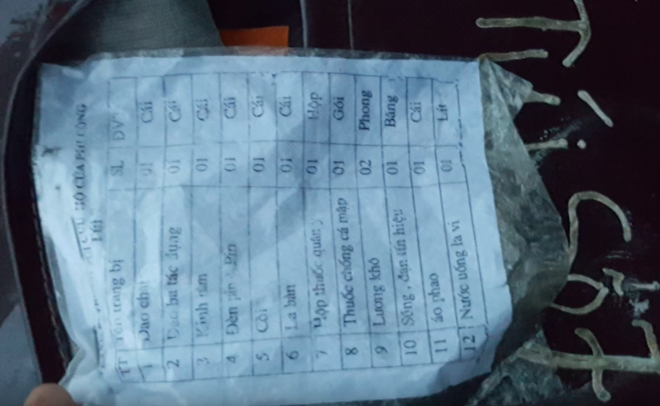 CỦA PHI CÔNG
TT Tên trang bị SL ĐVT
1 Dao 01 Cái
2 Dao ba tác dụng 01 Cái
3 Kính râm 01 Cái
4 Đèn pin Pin 01 Cái
5 Còi 01 Cái
6 La bàn 01 Cái
7 Hộp thuốc quân y 01 Hộp
8 Thuốc chống cá mập 01 Gói
9 Lương khô 02 Phong
10 Súng , đạn tín hiệu 01 Băng
11 áo phao 01 Cái
12 Nước uống la vi 01 Lít